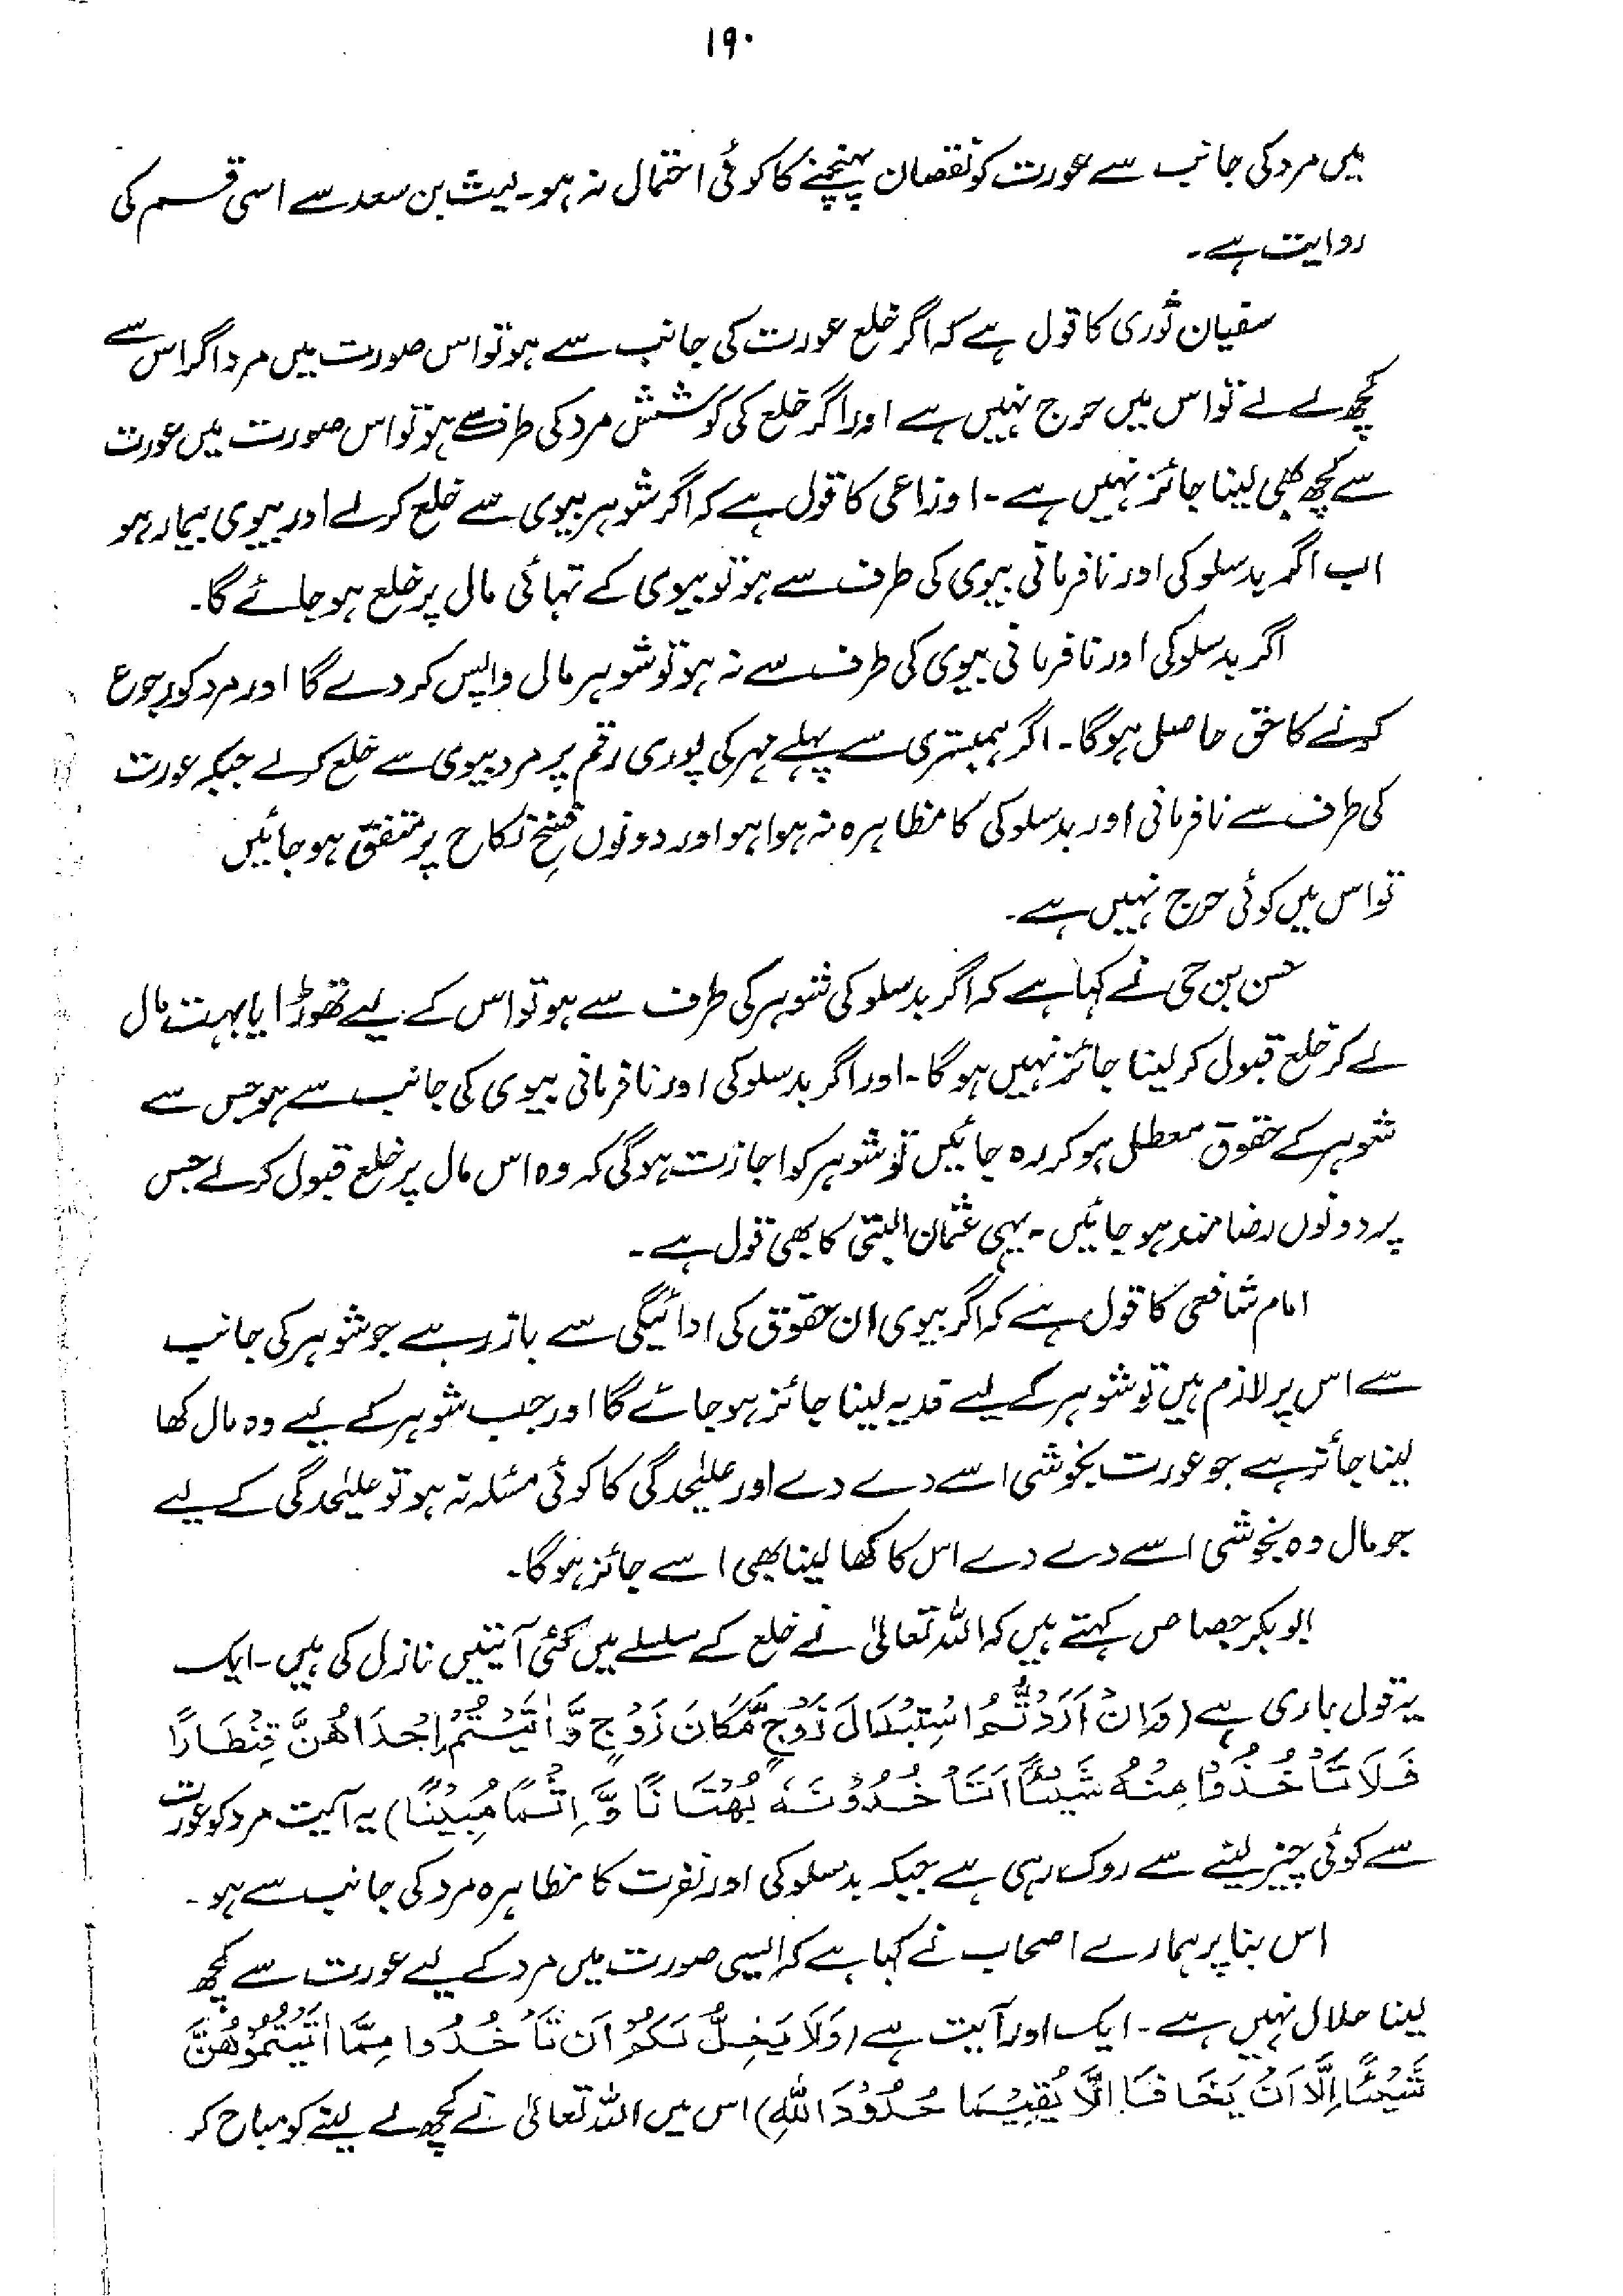 ۱۹۰
میں مرد کی جانب سے عورت کو نقصان پہنچنے کا کوئی احتمال نہ ہو۔ لیث بن سعد سے اسی قسم کی
روایت ہے۔
سفیان ثوری کا قول ہے کہ اگر خلع عورت کی جانب سے ہو تو اس صورت میں مرد اگر اس سے
کچھ لے لے تو اس میں حرج نہیں ہے اور اگر خلع کی کوشش مرد کی طرف سے ہو تو اس صورت میں عورت
سے کچھ بھی لینا جائز نہیں ہے۔ اوزاعی کا قول ہے کہ اگر شوہر بیوی سے خلع کرلے اور بیوی بیمار ہو
اب اگر بدسلوکی اور نافرمانی بیوی کی طرف سے ہو تو بیوی کے تہائی مال پر خلع ہو جائے گا۔
اگر بدسلوکی اور نافرمانی بیوی کی طرف سے نہ ہو تو شوہر مال واپس کردے گا اور مرد کو رجوع
کرنے کا حق حاصل ہوگا۔ اگر ہمبستری سے پہلے مہر کی پوری رقم پر مرد بیوی سے خلع کرلے جبکہ عورت
کی طرف سے نافرمانی اور بدسلوکی کا مظاہرہ نہ ہوا ہو اور دونوں فسخِ نکاح پر متفق ہو جائیں
تو اس میں کوئی حرج نہیں ہے۔
حسن بن حی نے کہا ہے کہ اگر بدسلوکی شوہر کی طرف سے ہو تو اس کے لیے تھوڑا یا بہت مال
لے کر خلع قبول کرلینا جائز نہیں ہوگا۔ اور اگر بدسلوکی اور نافرمانی بیوی کی جانب سے ہو جس سے
شوہر کے حقوق معطل ہو کر رہ جائیں تو شوہر کو اجازت ہوگی کہ وہ اس مال پر خلع قبول کرلے جس
پر دونوں رضامند ہو جائیں۔ یہی عثمان البتی کا بھی قول ہے۔
امام شافعی کا قول ہے کہ اگر بیوی ان حقوق کی ادائیگی سے باز رہے جو شوہر کی جانب
سے اس پر لازم ہیں تو شوہر کے لیے فدیہ لینا جائز ہو جائے گا اور جب شوہر کے لیے وہ مال کھا
لینا جائز ہے جو عورت بخوشی اسے دے دے اور علیٰحدگی کا کوئی مسئلہ نہ ہو تو علیٰحدگی کے لیے
جو مال وہ بخوشی اسے دے دے اس کا کھا لینا بھی اسے جائز ہوگا۔
ابوبکر جصاص کہتے ہیں کہ اللہ تعالیٰ نے خلع کے سلسلے میں کئی آیتیں نازل کی ہیں۔ ایک
یہ قول باری ہے (وَاِنْ اَرَدْتُّمُ اسْتِبْدَالَ زَوْجٍ مَّكَانَ زَوْجٍ وَّاٰتَيْتُمْ اِحْدَاهُنَّ قِنْطَارًا
فَلَا تَاْخُذُوْا مِنْهُ شَيْئًا اَتَاْخُذُوْنَهٗ بُهْتَانًا وَّاِثْمًا مُّبِيْنًا) یہ آیت مرد کو عورت
سے کوئی چیز لینے سے روک رہی ہے جبکہ بدسلوکی اور نفرت کا مظاہرہ مرد کی جانب سے ہو۔
اس بنا پر ہمارے اصحاب نے کہا ہے کہ ایسی صورت میں مرد کے لیے عورت سے کچھ
لینا حلال نہیں ہے۔ ایک اور آیت ہے (وَلَا يَحِلُّ لَكُمْ اَنْ تَاْخُذُوا مِمَّا اٰتَيْتُمُوْهُنَّ
شَيْئًا اِلَّا اَنْ يَخَافَا اَلَّا يُقِيْمَا حُدُوْدَ اللّٰهِ) اس میں اللہ تعالیٰ نے کچھ لے لینے کو مباح کر